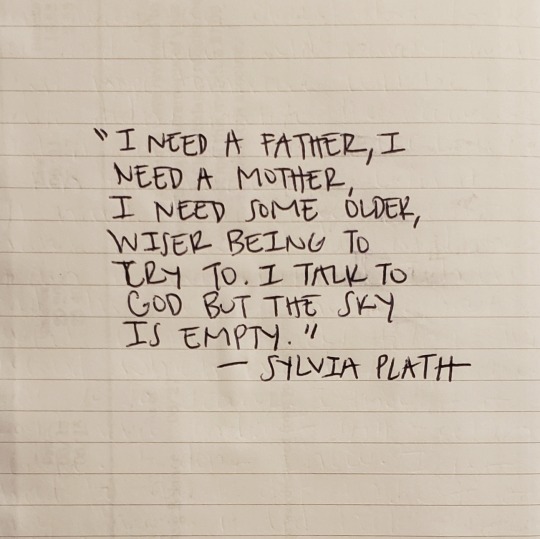 "I NEED A FATHER, I
NEED A MOTHER,
I NEED SOME OLDER,
WISER BEING TO
CRY TO. I TALK TO
GOD BUT THE SKY
IS EMPTY."
— SYLVIA PLATH